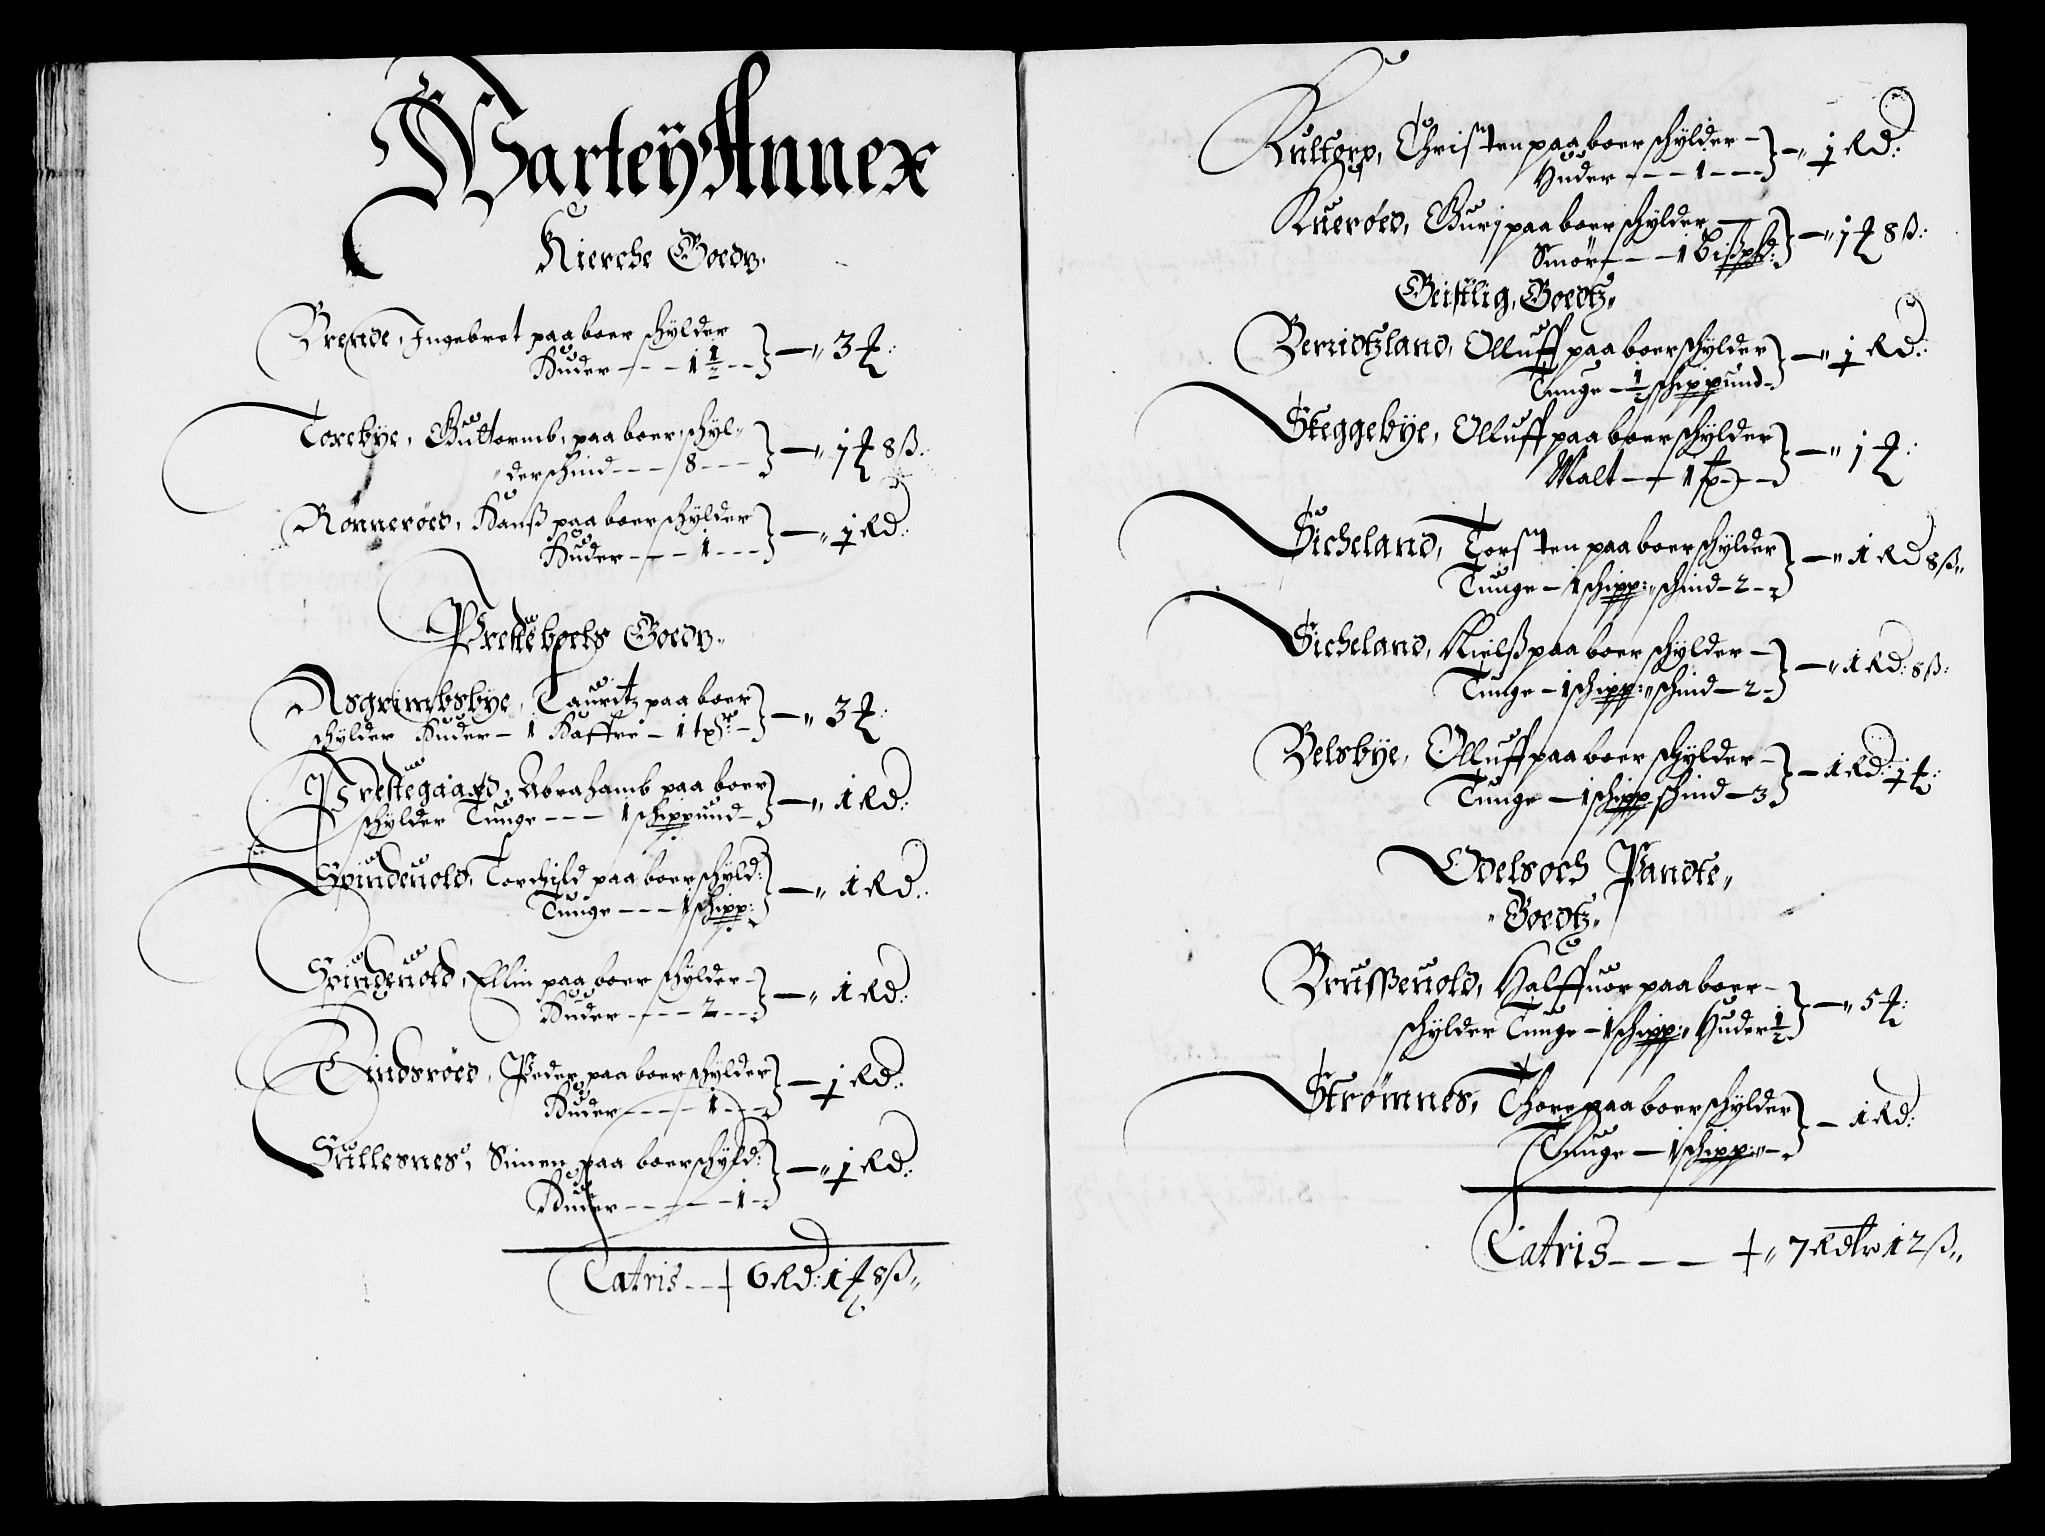 Wartey Annex
Kierche Goedtz.
Brende, Ingebret paa boer schylder
Huder - - - 1½ - - } — „ 3 ort:
Torebye, Guttormb, paa boer, schyl„
„der schind - - - 8 - - - } — „ 1 ort 8 ß.
Rönneröed, Hanß paa boer schylder
Huder - - - 1 - - - } — „ 1 Rd:
Presteboels Goedtz„
Asgrimbsbye, Lauritz paa boer
schylder Huder — 1 Haffre — 1 — } — „ 3 ort:
Prestegaard, Abrahamb paa boer
schylder Tunge - - - 1 schippund - } — „ 1 Rd:
Spinduold, Torchild paa boer schyld:
Tunge - - - 1 schipp: } — „ 1 Rd:
Spinduold, Ellin paa boer schylder -
Huder - - - - 2 - - } — „ 1 Rd:
Tindsröed, Peder paa boer schylder
Huder - - - - 1 - - - } — 1 Rd:
Sullesnes, Simen paa boer schyld:
Huder - - - - - 1 - } — „ 1 Rd:
Latris - - 6 Rd: 1 ort 8 ß„
Kultorp, Christen paa boer schylder —
Huder - - - 1 - - - } — „ 1 Rd:
Kueröed, Gurj paa boer schylder —
Smör - - - 1 Bißpd: } — „ 1 ort 8 ß:
Geistlig, Goedtz„
Berridtzland, Olluff paa boer schylder
Tunge — ½ schippund - } — „ 1 Rd:
Skeggebye, Olluff paa boer schylder
Malt — 1 - - } — „ 1 ort:
Sicheland, Torsten paa boer schylder
Tunge — 1 schipp: „ schind — 2 - } — „ 1 Rd 8 ß„
Sicheland, Nielß paa boer schylder —
Tunge — 1 schipp: „ schind — 2 - } — „ 1 Rd: 8 ß:
Belsbye, Olluff paa boer schylder —
Tunge — 1 schipp schind — 3 } — 1 Rd: 1 ort:
Odelsoch Pandte„
„Goedtz„
Brusseuold, Halffuor paa boer —
schylder Tunge — 1 schipp: „ Huder ½ } — „ 5 ort:
Strömnes, Thore paa boer schylder
Tunge — 1 schipp: „ - } — 1 Rd:
Latris - - - „ 7 Rdlr 12 ß„